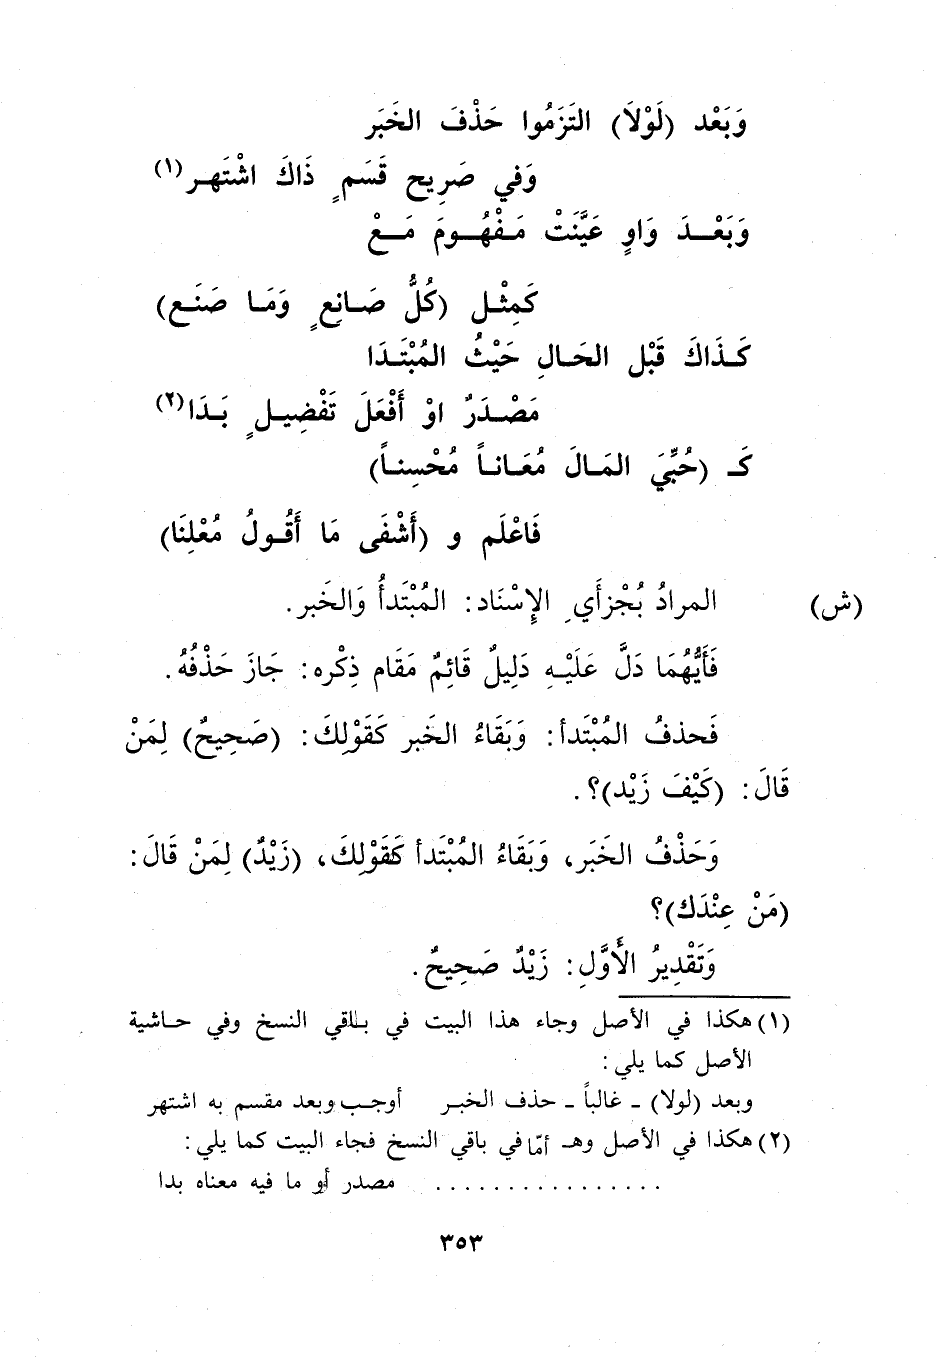 وَبَعْد (لَوْلاَ) التَزَمُوا حَذْفَ الخَبَر
وَفي صَرِيح قَسَمٍ ذَاكَ اشْتَهـر(١)
وَبَعْـــدَ وَاوٍ عَيَّنَتْ مَـفْهُـــومَ مَـــعْ
كَمِثْـل (كُلُّ صَـانِعٍ وَمَـا صَنَـع)
كَـذَاكَ قَبْل الحَـالِ حَيْثُ المُبْتَـدَا
مَصْـدَرٌ اوْ أَفْعَلَ تَفْضِيـلٍ بَـدَا(٢)
كَـ (حُبِّيَ المَـالَ مُعَـانـاً مُحْسِنـاً)
فَاعْلَم و (أَشْفَى مَا أَقُـولُ مُعْلِنَا)
(ش) المرادُ بُجْزأَي الإِسْنَاد: المُبْتَدأُ وَالخَبر.
فَأَيُّهُمَا دَلَّ عَلَيْـهِ دَلِيلٌ قَائِمٌ مَقَام ذِكْره: جَازَ حَذْفُهُ.
فَحذفُ المُبْتَدأ: وَبَقَاءُ الخَبر كَقَوْلِكَ: (صَحِيحٌ) لِمَنْ
قَالَ: (كَيْفَ زَيْد)؟.
وَحَذْفُ الخَبَر، وَبَقَاءُ المُبْتَدأ كَقَوْلِكَ، (زَيْدٌ) لِمَنْ قَالَ:
(مَنْ عِنْدَك)؟
وَتَقْدِيرُ الأَوَّلِ: زَيْدٌ صَحِيحٌ.
(١) هكذا في الأصل وجاء هذا البيت في باقي النسخ وفي حـاشية
الأصل كما يلي:
وبعد (لولا) ـ غالباً ـ حذف الخبـر أوجـب وبعد مقسم به اشتهر
(٢) هكذا في الأصل وهـ أمّا في باقي النسخ فجاء البيت كما يلي:
. . . . . . . . . . . . . . . . مصدر أو ما فيه معناه بدا
٣٥٣